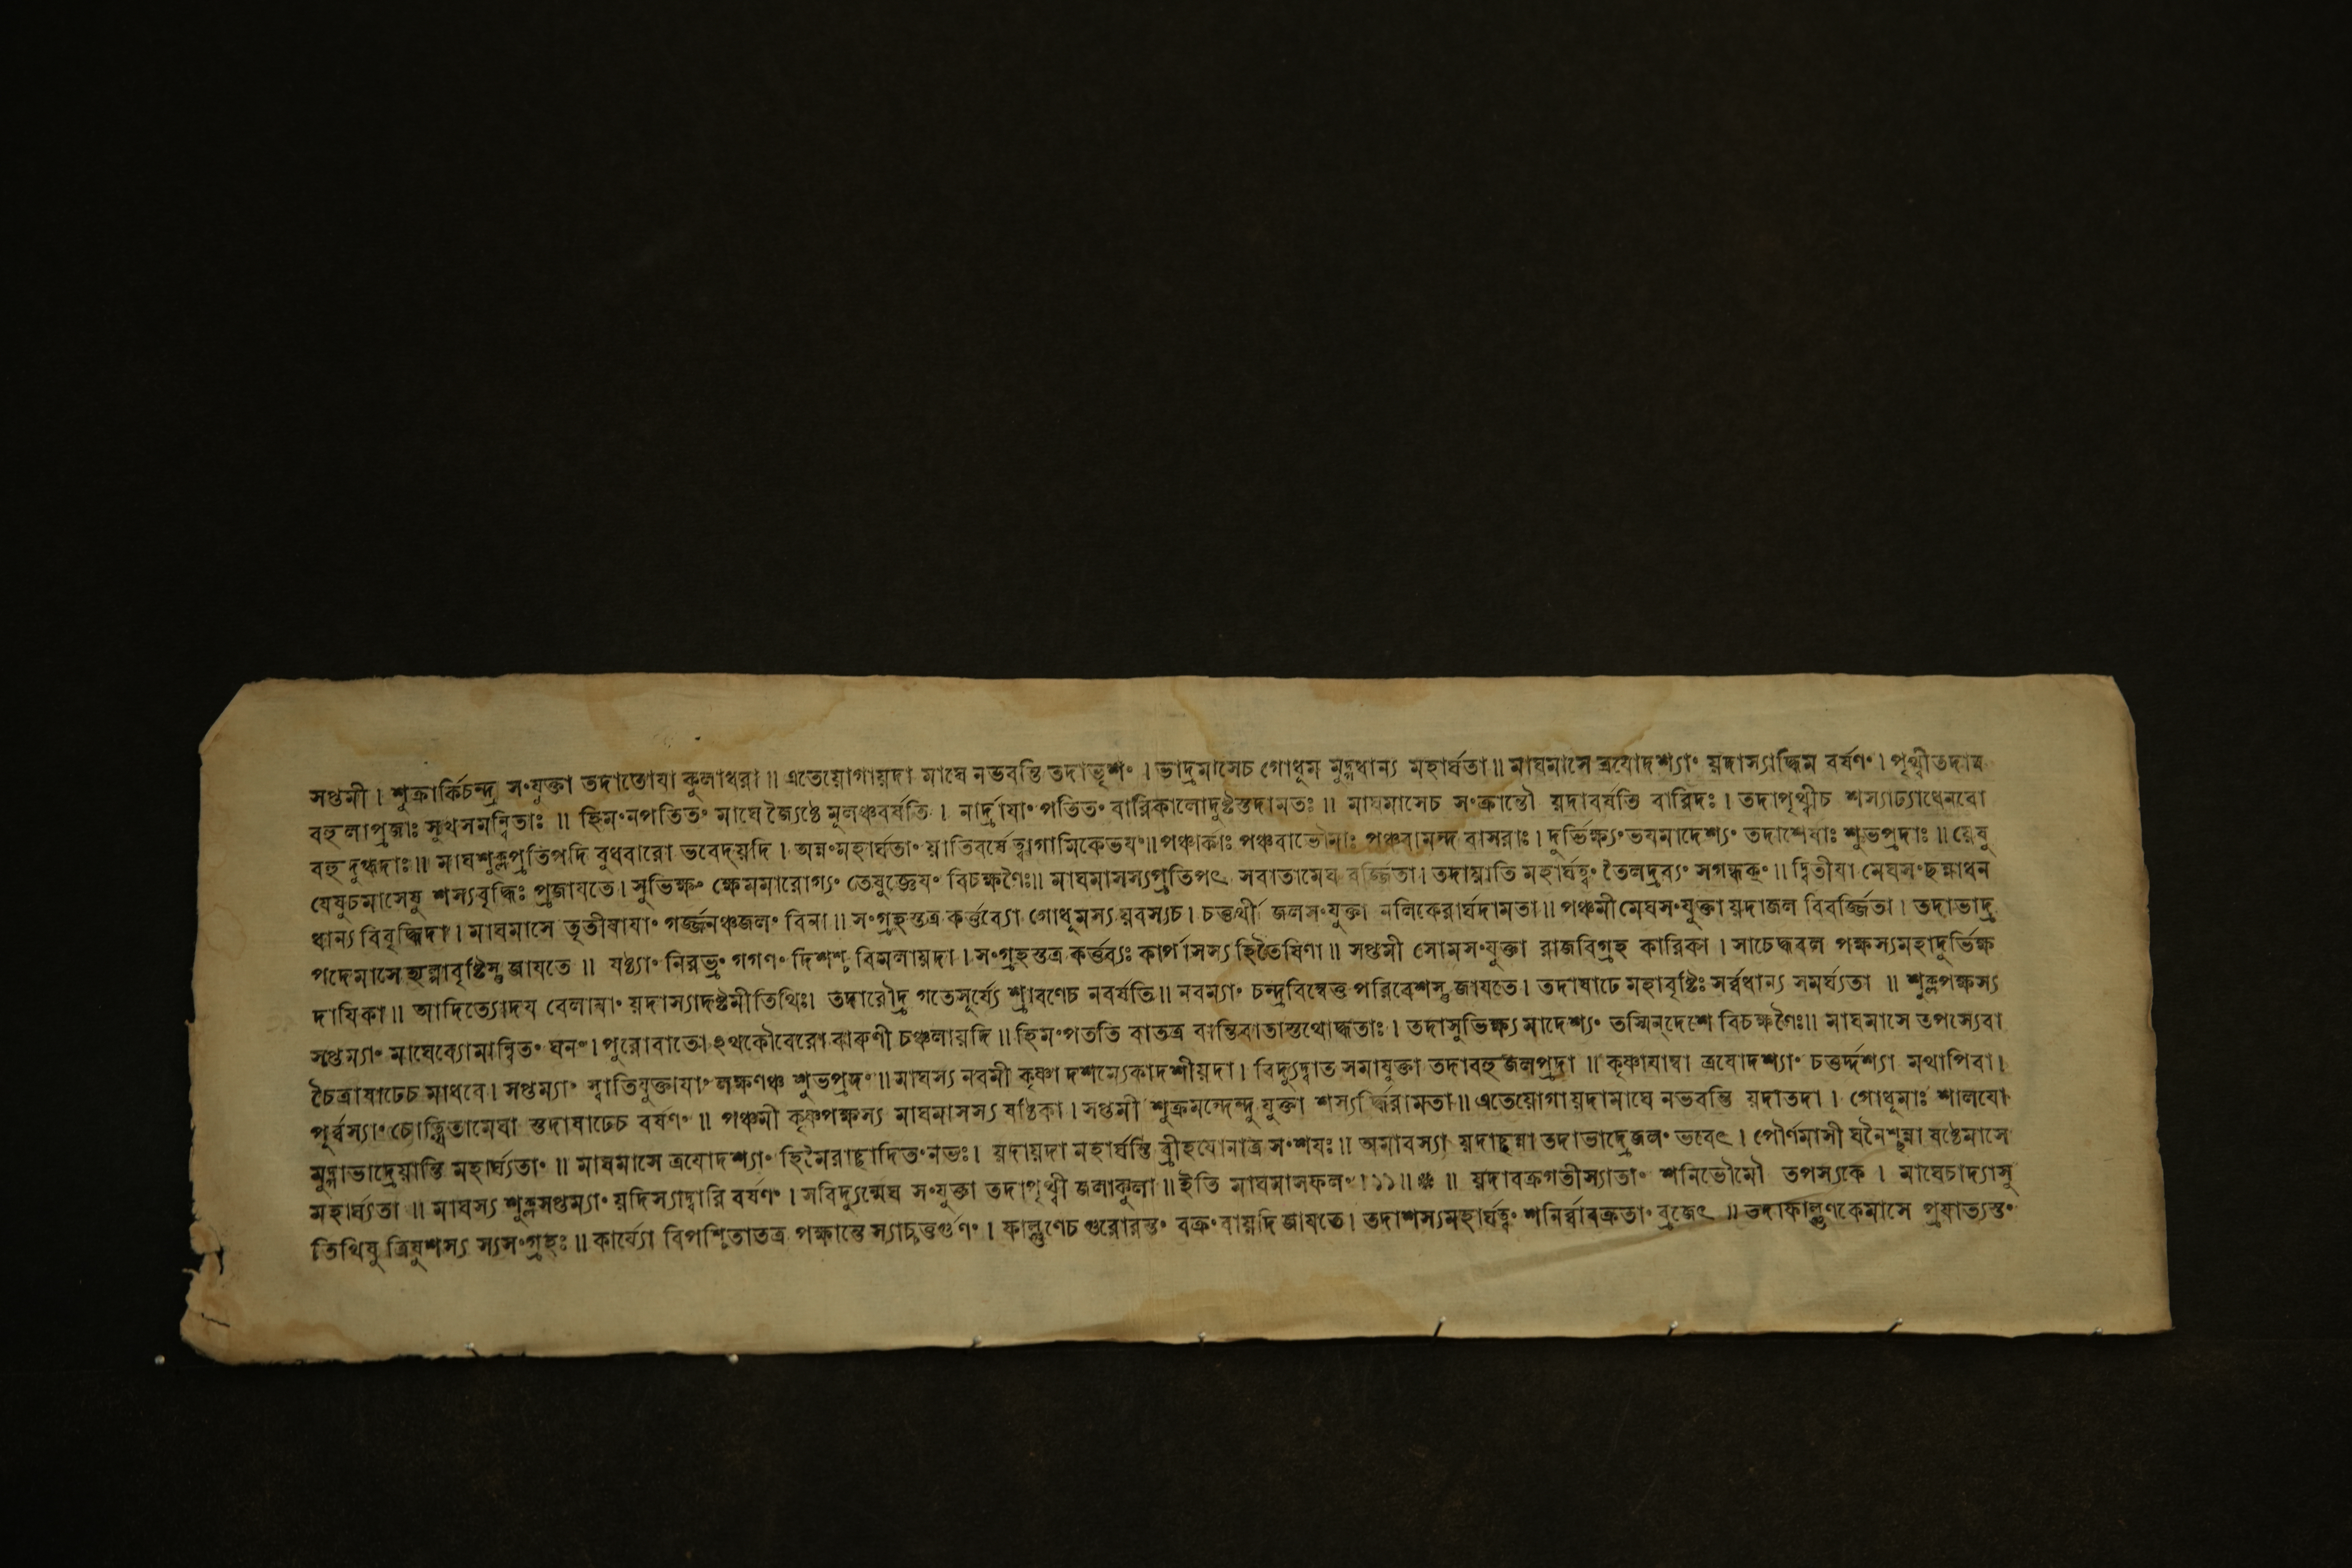 সপ্তমী । শুক্রার্কিচন্দ্র সংযুক্তা তদাতোযা কুলাধরা ॥ এতেয়োগায়দা মাঘে নভবন্তি তদাভৃশং । ভাদ্রমাসেচ গোধূম মুদ্গধান্য মহার্ঘতা ॥ মাঘমাসে ত্রযোদশ্যাং য়দাস্যাদ্ধিম বর্ষণং । পৃথ্বীতদাত্র
বহুলাপ্রজাঃ সুখসমন্বিতাঃ ॥ হিমংনপতিতং মাঘে জ্যৈষ্ঠে মূলঞ্চবর্ষতি । নার্দ্রাযাং পতিতং বারিকালোদুষ্টস্তদামতঃ ॥ মাঘমাসেচ সংক্রান্তৌ য়দাবর্ষতি বারিদঃ । তদাপৃথ্বীচ শস্যাঢ্যাধেনবো
বহুদুগ্ধদাঃ ॥ মাঘশুক্লপ্রতিপদি বুধবারো ভবেদ্য়দি । অন্নংমহার্ঘতাং য়াতিবর্ষেত্বাগামিকেভযং ॥ পঞ্চার্কাঃ পঞ্চবাভৌমাঃ পঞ্চবামন্দ বাসরাঃ । দুর্ভিক্ষ্যংভযমাদেশ্যং তদাশেষাঃ শুভপ্রদাঃ ॥ য়েষু
যেষুচমাসেষু শস্যবৃদ্ধিঃ প্রজাযতে । সুভিক্ষং ক্ষেমমারোগ্যং তেষুজ্ঞেযং বিচক্ষণৈঃ ॥ মাঘমাসস্যপ্রতিপৎ সবাতামেঘ বর্জ্জিতা । তদায়াতি মহার্ঘত্বং তৈলদ্রব্যং সগন্ধকং ॥ দ্বিতীযা মেঘসংছন্নাধন
ধান্য বিবৃদ্ধিদা । মাঘমাসে তৃতীযাযাং গর্জ্জনঞ্চজলং বিনা ॥ সংগ্রহস্তত্র কর্ত্তব্যো গোধূমস্য য়বস্যচ । চতুর্থী জলসংযুক্তা নলিকেরার্ঘদামতা ॥ পঞ্চমীমেঘসংযুক্তা য়দাজল বিবর্জ্জিতা । তদাভাদ্র
পদেমাসে হ্যল্পাবৃষ্টিস্তু জাযতে ॥ ষষ্ঠ্যাং নিরভ্রং গগণং দিশশ্চ বিমলায়দা । সংগ্রহস্তত্র কর্ত্তব্যঃ কার্পাসস্য হিতৈষিণা ॥ সপ্তমী সোমসংযুক্তা রাজবিগ্রহ কারিকা । সাচেদ্ধবল পক্ষস্যমহাদুর্ভিক্ষ
দাযিকা ॥ আদিত্যোদয বেলাযাং য়দাস্যাদষ্টমীতিথিঃ। তদারৌদ্র গতেসূর্য্যে শ্রাবণেচ নবর্ষতি ॥ নবম্যাং চন্দ্রবিম্বেত্তু পরিবেশস্তু জাযতে । তদাষাঢে মহাবৃষ্টিঃ সর্ব্বধান্য সমর্ঘ্যতা ॥ শুক্লপক্ষস্য
সপ্তম্যাং মাঘেব্যোমান্বিতং ঘনং । পুরোবাতো ২থকৌবেরো বারুণী চঞ্চলায়দি ॥ হিমংপততি বাতত্র বান্তিবাতাস্তথোদ্ধতাঃ । তদাসুভিক্ষ্য মাদেশ্যং তস্মিন্দেশে বিচক্ষণৈঃ ॥ মাঘমাসে তপস্যেবা
চৈত্রাষাঢেচ মাধবে । সপ্তম্যাং স্বাতিযুক্তাযাং লক্ষণঞ্চ শুভপ্রদং ॥ মাঘস্য নবমী কৃষ্ণা দশম্যেকাদশীয়দা । বিদ্যুদ্বাত সমাযুক্তা তদাবহুজলপ্রদা ॥ কৃষ্ণাযাম্বা ত্রযোদশ্যাং চতুর্দ্দশ্যা মথাপিবা ।
পূর্ব্বস্যাং চোত্থিতামেঘা স্তদাষাঢেচ বর্ষণং ॥ পঞ্চমী কৃষ্ণপক্ষস্য মাঘমাসস্য ষষ্ঠিকা । সপ্তমী শুক্রমন্দেন্দু যুক্তা শস্যর্দ্ধিরামতা ॥ এতেয়োগায়দামাঘে নভবন্তি য়দাতদা । গোধূমাঃ শালযো
মুদ্গাভাদ্রেয়ান্তি মহার্ঘ্যতাং ॥ মাঘমাসে ত্রযোদশ্যাং হিমৈরাচ্ছাদিতংনভঃ । য়দায়দা মহার্ঘন্তি ব্রীহযোনাত্র সংশযঃ ॥ অমাবস্যা য়দাচ্ছন্না তদাভাদ্রেজলং ভবেৎ । পৌর্ণমাসী ঘনৈশ্ছন্না ষষ্ঠেমাসে
মহার্ঘ্যতা ॥ মাঘস্য শুক্লসপ্তম্যাং য়দিস্যাদ্বারি বর্ষণং । সবিদ্যুন্মেঘ সংযুক্তা তদাপৃথ্বী জলাকুলা ॥ ইতি মাঘমাসফলং ।১১॥ ॥ য়দাবক্রগতীস্যাতাং শনিভৌমৌ তপস্যকে । মাঘেচাদ্যাসু
তিথিষু ত্রিষুশস্য স্যসংগ্রহঃ ॥ কার্য্যো বিপশ্চিতাতত্র পক্ষান্তে স্যাচ্চতুর্গুণং । ফাল্গুণেচ গুরোরস্তং বক্রংবায়দি জাযতে । তদাশস্যমহার্ঘত্বং শনির্ব্বাবক্রতাং ব্রজেৎ ॥ তদাফাল্গুণকেমাসে প্রযাত্যস্তং